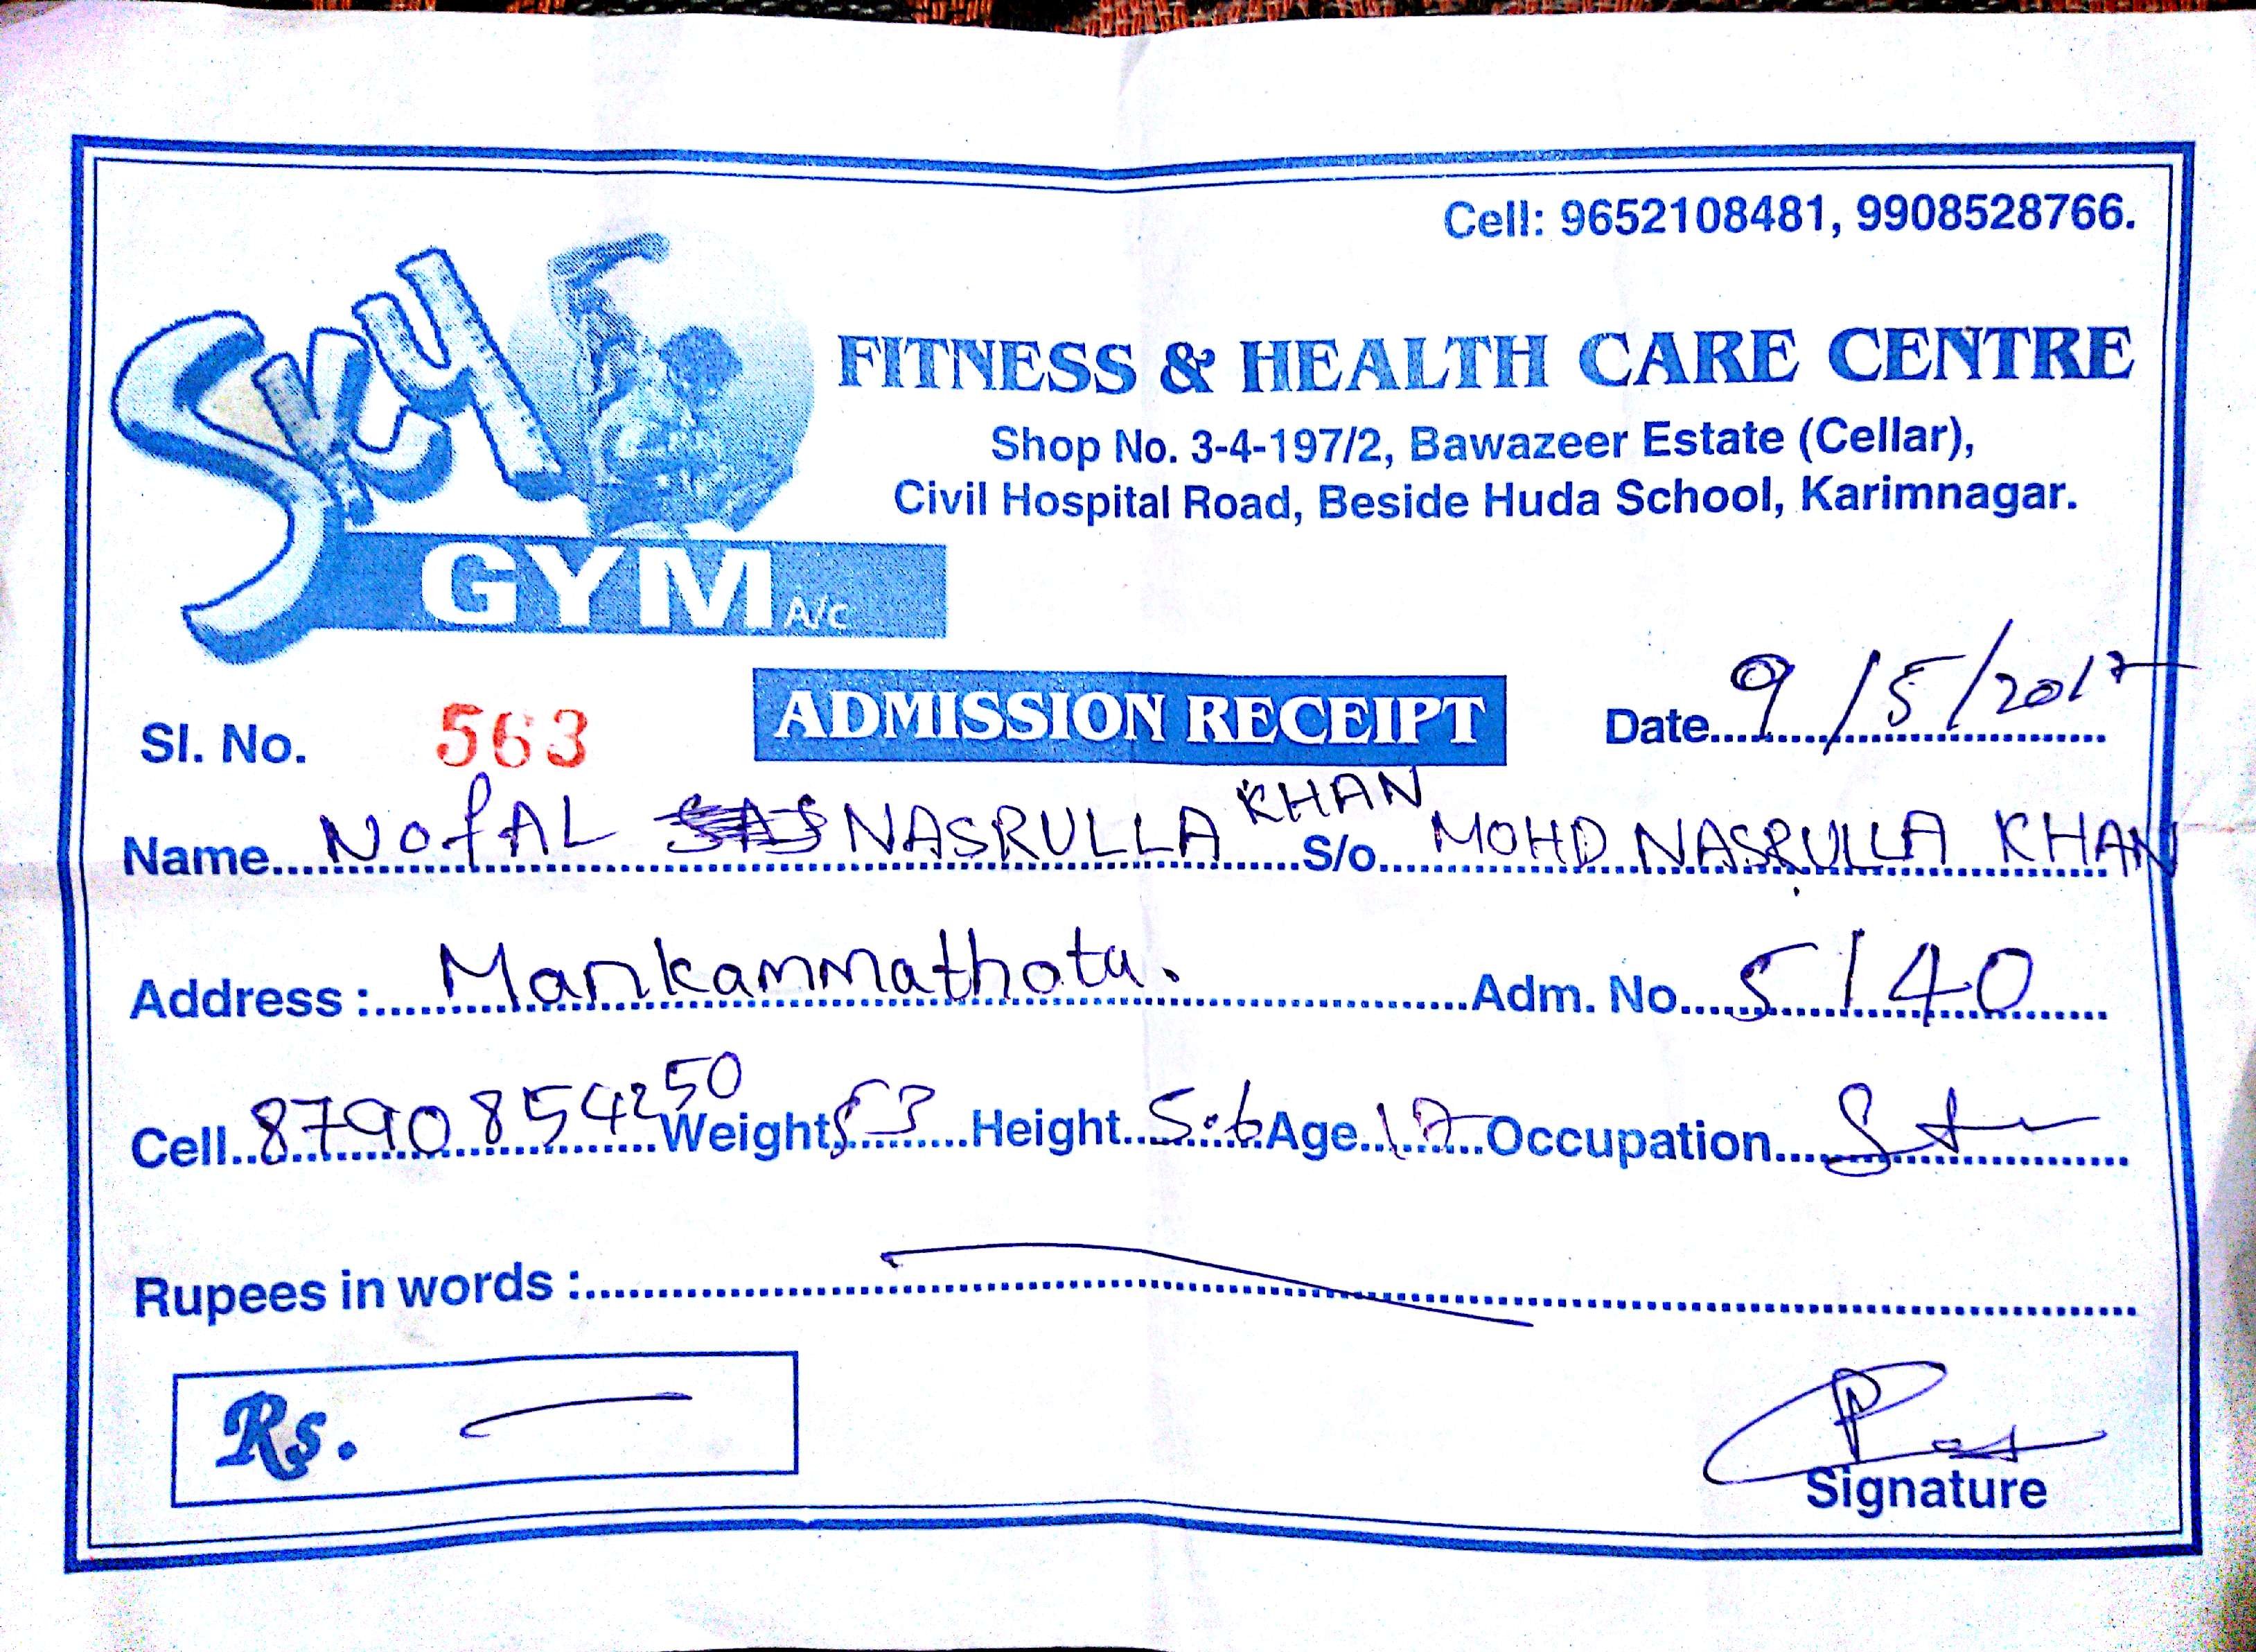 Cell: 9652108481, 9908528766.
Sky
GYM A/c
FITNESS & HEALTH CARE CENTRE
Shop No. 3-4-197/2, Bawazeer Estate (Cellar),
Civil Hospital Road, Beside Huda School, Karimnagar.
Sl. No. 563 ADMISSION RECEIPT Date 9/5/2017
Name NofAL NASRULLA KHAN S/o MOHD NASRULLA KHAN
Address : Mankammathota. Adm. No. 5140
Cell 8790854250 Weight 53 Height 5.6 Age 17 Occupation
Rupees in words :
Rs.
Signature